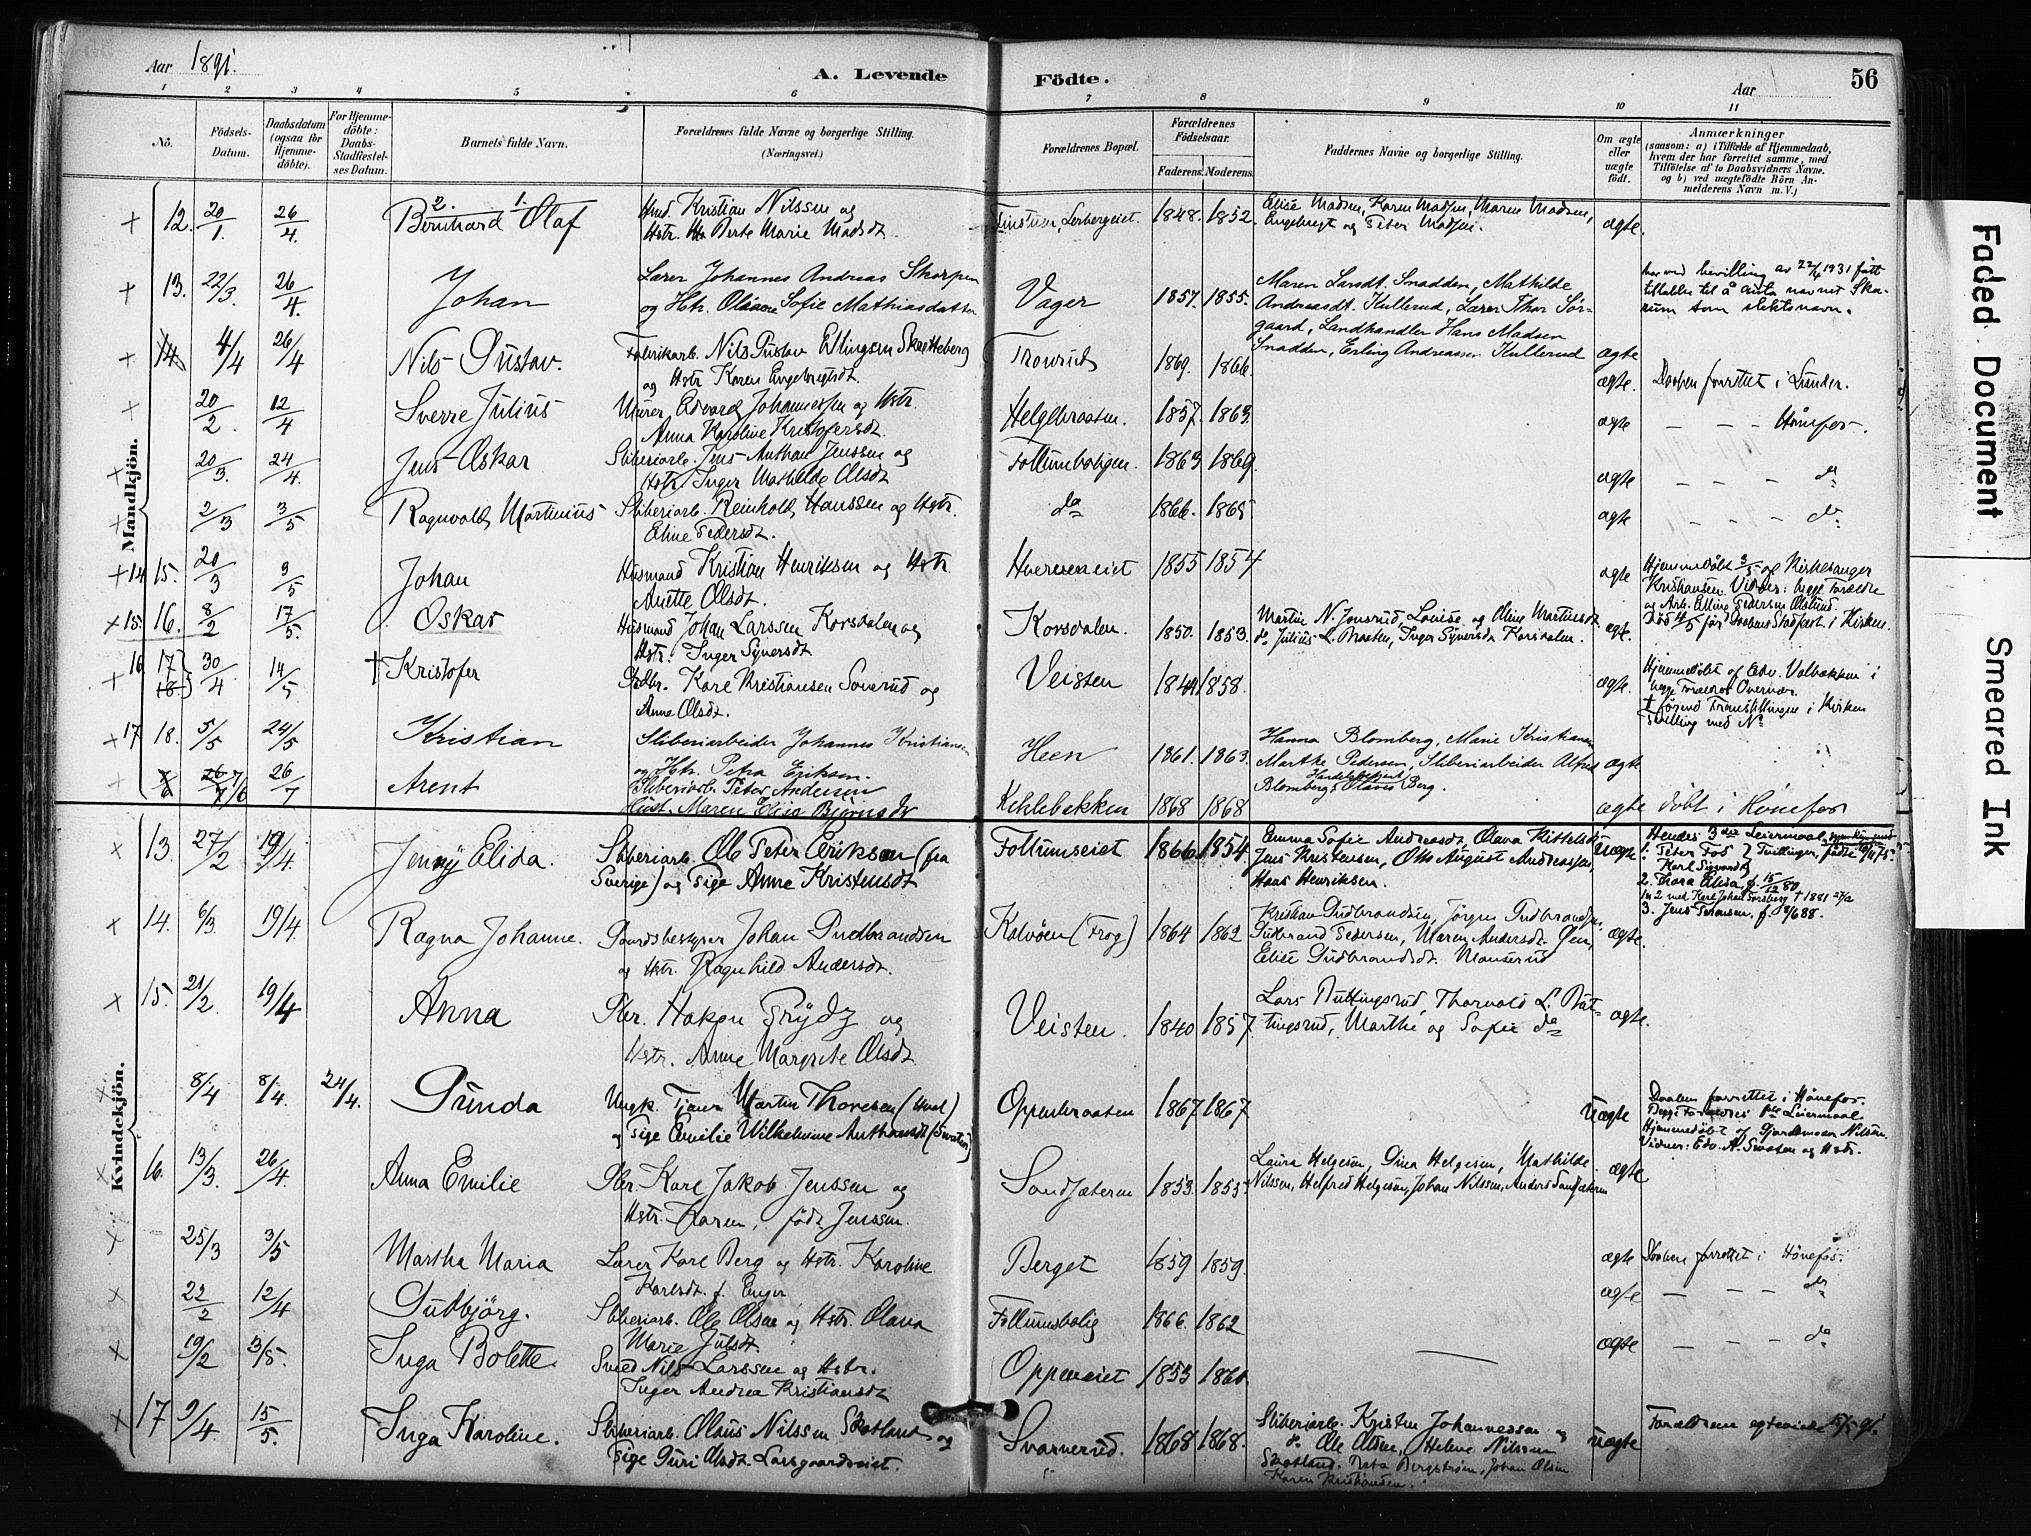 Aar 1891.
A. Levende Födte.
Aar
56
1 2 3 4 5 6 7 8 9 10 11
No.
Födsels-Datum.
Daabsdatum (ogsaa for Hjemme-döbte).
For Hjemme-döbte: Daabs-Stadfæstel-ses Datum.
Barnets fulde Navn.
Forældrenes fulde Navne og borgerlige Stilling. (Næringsvei.)
Forældrenes Bopæl.
Forældrenes Födselsaar.
Faderens. Moderens.
Faddernes Navne og borgerlige Stilling.
Om ægte eller uægte födt.
Anmærkninger
(saasom: a) i Tilfælde af Hjemmedaab, hvem der har forrettet samme, med Tilföielse af to Daabsvidners Navne. og b) ved uægtefödte Börn An-melderens Navn m. V.)
Mandkjön.
+ 12. 20/1. 26/4. 2. Bernhard 1. Olaf
Hmd. Kristian Nilssen og
Hstr. Berte Marie Madsdt.
Lerbergeiet. 1848. 1852.
Elise Madsen, Karen Madsen, Maren Madsen,
Engebregt og Peter Madsen. ægte.
+ 13. 22/3. 26/4. Johan
Lærer Johannes Andreas Skarpen
og Hstr. Oleane Sofie Mathiasdatter
Vager 1857. 1855.
Maren Larsdt. Snadden, Mathilde
Andreasdt. Kullerud, Lærer Thor Sör-
gaard, Landhandler Hans Madsen
Snadden, Erling Andreassen Kullerud ægte
har ved bevilling av 22/4 1931 fått
tillatelse til å anta navnet Ska-
rum som slektsnavn.
+ 14 4/4 26/4 Nils Gustav.
Fabrikarb. Nils Gustav Ellingsen Skjætteberg
og Hstr Karen Engebregtsdt.
Tronrud 1869. 1866. ægte. Daaben forrettet i Lunder.
+ 20/2. 12/4 Sverre Julius
Murer Edvard Johannessen og Hstr
Anna Karoline Kristofersdt.
Helgebraaten. 1857. 1863. ægte — — Hönefos.
20/3. 24/4. Jens Oskar
Sliberiarb. Jens Anthon Jenssen og
Hstr Inger Mathilde Olsdt
Follumboligen. 1863 1869. ægte — — — do
2/3 3/5 Ragnvald Martinius
Sliberiarb. Reinhold Hanssen og Hstr.
Eline Pedersdt.
do 1866. 1865 ægte — — — do
+14 15. 20/3 3/5 Johan
Husmand Kristian Henriksen og Hstr
Anette Olsdt.
Hverveneiet 1855 1854 ægte
Hjemmedöbt 3/5 af Kirkesanger
Kristiansen. Vidner: begge Forældre
og Arb. Elling Pedersen Öslund.
Död 4/5 för Daabens Stadfæst. i Kirken.
+15. 16. 8/2 17/5. Oskar
Husmand Johan Larssen Korsdalen og
Hstr. Inger Syversdt
Korsdalen. 1850. 1853.
Martin N. Jonsrud, Lovise og Oline Martinsdt
do Julius L. Braaten, Inger Syversdt Korsdalen. ægte.
16 17 18. 30/4 14/5 † Kristofer
Gbr. Karl Kristiansen Sonerud og
Anne Olsdt.
Veisten 1849 1858. ægte.
Hjemmedöbt af Edv. Valbakken i
begge Forældres Overvær.
† förend Fremstillingen i Kirken
+17 18. 5/5 24/5 Kristian
Sliberiarbeider Johannes Kristiansen
og Hstr. Petra Eriksen.
Heen 1861. 1863.
Hanna Blomberg, Marie Kristiansen
Marthe Pedersen, Sliberiarbeider Alfred
Blomberg, Handelsbetjent Olaves Berg. ægte
26/7 7/6 26/7 Arent
Sliberiarb. Peter Andersen
Hust. Maren Elisa Björnsdt
Kihlebakken 1868 1868 ægte döbt i Hönefos
Kvindekjön.
× 13. 27/2 19/4. Jenny Elida.
Sliberiarb. Ole Peter Eriksen (fra
Sverige) og Pige Anne Kristensdt
Follumseiet 1866. 1854.
Emma Sofie Andreasdt, Olava Kittelsdt
Jens Kristensen, Otto August Andreassen,
Hans Henriksen. uægte
Hendes 3die Leiermaal
1. Peter Fos } Tvillinger, födte
Karl Sigvard
2. Thora Elisa, f. 15/12 80
3. Jens Terensen, f.
× 14. 6/3. 19/4. Ragna Johanne.
Gaardsbestyrer Johan Gudbrandsen
og Hstr. Ragnhild Andersdt.
Kalvöen (Frog) 1864 1862
Kristian Gudbrandsen, Jörgen Gudbrandsen,
Gudbrand Pedersen, Maren Andersdt.
Elise Gudbrandsdt. Monserud ægte.
× 15. 21/2. 19/4 Anna
Gbr. Hakon Fryds og
Hstr. Anne Margrete Olsdt
Veisten. 1840 1857.
Lars Buttingsrud, Thorvald L. But-
tingsrud, Marthe og Sofie do ægte.
× 8/4 8/4. 24/4. Gunda
Ungk. Tjener Martin Thoresen (Hval)
og Pige Emilie Wilhelmine Anthonsdt
Oppenbraaten 1867 1867 uægte
Daaben forrettet i Hönefos.
Begge Forældres 1ste Leiermaal
Hjemmedöbt af Gjordemoer Nilsen.
Vidner: Edv. A. og Hstr.
16. 13/3. 26/4. Anna Emilie
Gbr. Karl Jakob Jenssen og
Hstr. Karen, födt Jenssen.
Sandsæteren 1853. 1855.
Laura Helgesen, Gina Helgesen, Mathilde
Nilssen, Helfred Helgesen, Johan Nilssen, Anders Sandsæteren ægte
25/3 3/5 Martha Maria
Lærer Karl Berg og Hstr. Karoline
Karlsdt. f. Enger
Berget 1859 1859. ægte Daaben forrettet i Hönefos.
22/2 12/4 Gudbjörg.
Sliberiarb. Ole Olsen og Hstr. Olava
Marie Julsdt.
Follumsbolig 1866. 1862 ægte — — — do
× 19/2 3/5. Inga Bolette.
Smed Nils Larssen og Hstr.
Inger Andrea Kristiansdt
Oppeneiet 1853 1861 ægte — — — do
× 17 9/4. 15/5. Inga Karoline.
Sliberiarb. Olaus Nilssen Skotland og
Pige Guri Olsdt. Larsgaardseiet.
Svarverud. 1868 1868.
Sliberiarb. Kristen Johannessen og
do Ole Olsen, Helene Nilssen
Skotland. Beta Bergström, Johan Olsen
Karen Kristiansen. uægte
Forældrene egteviede 15/5 91.
Faded Document
Smeared Ink